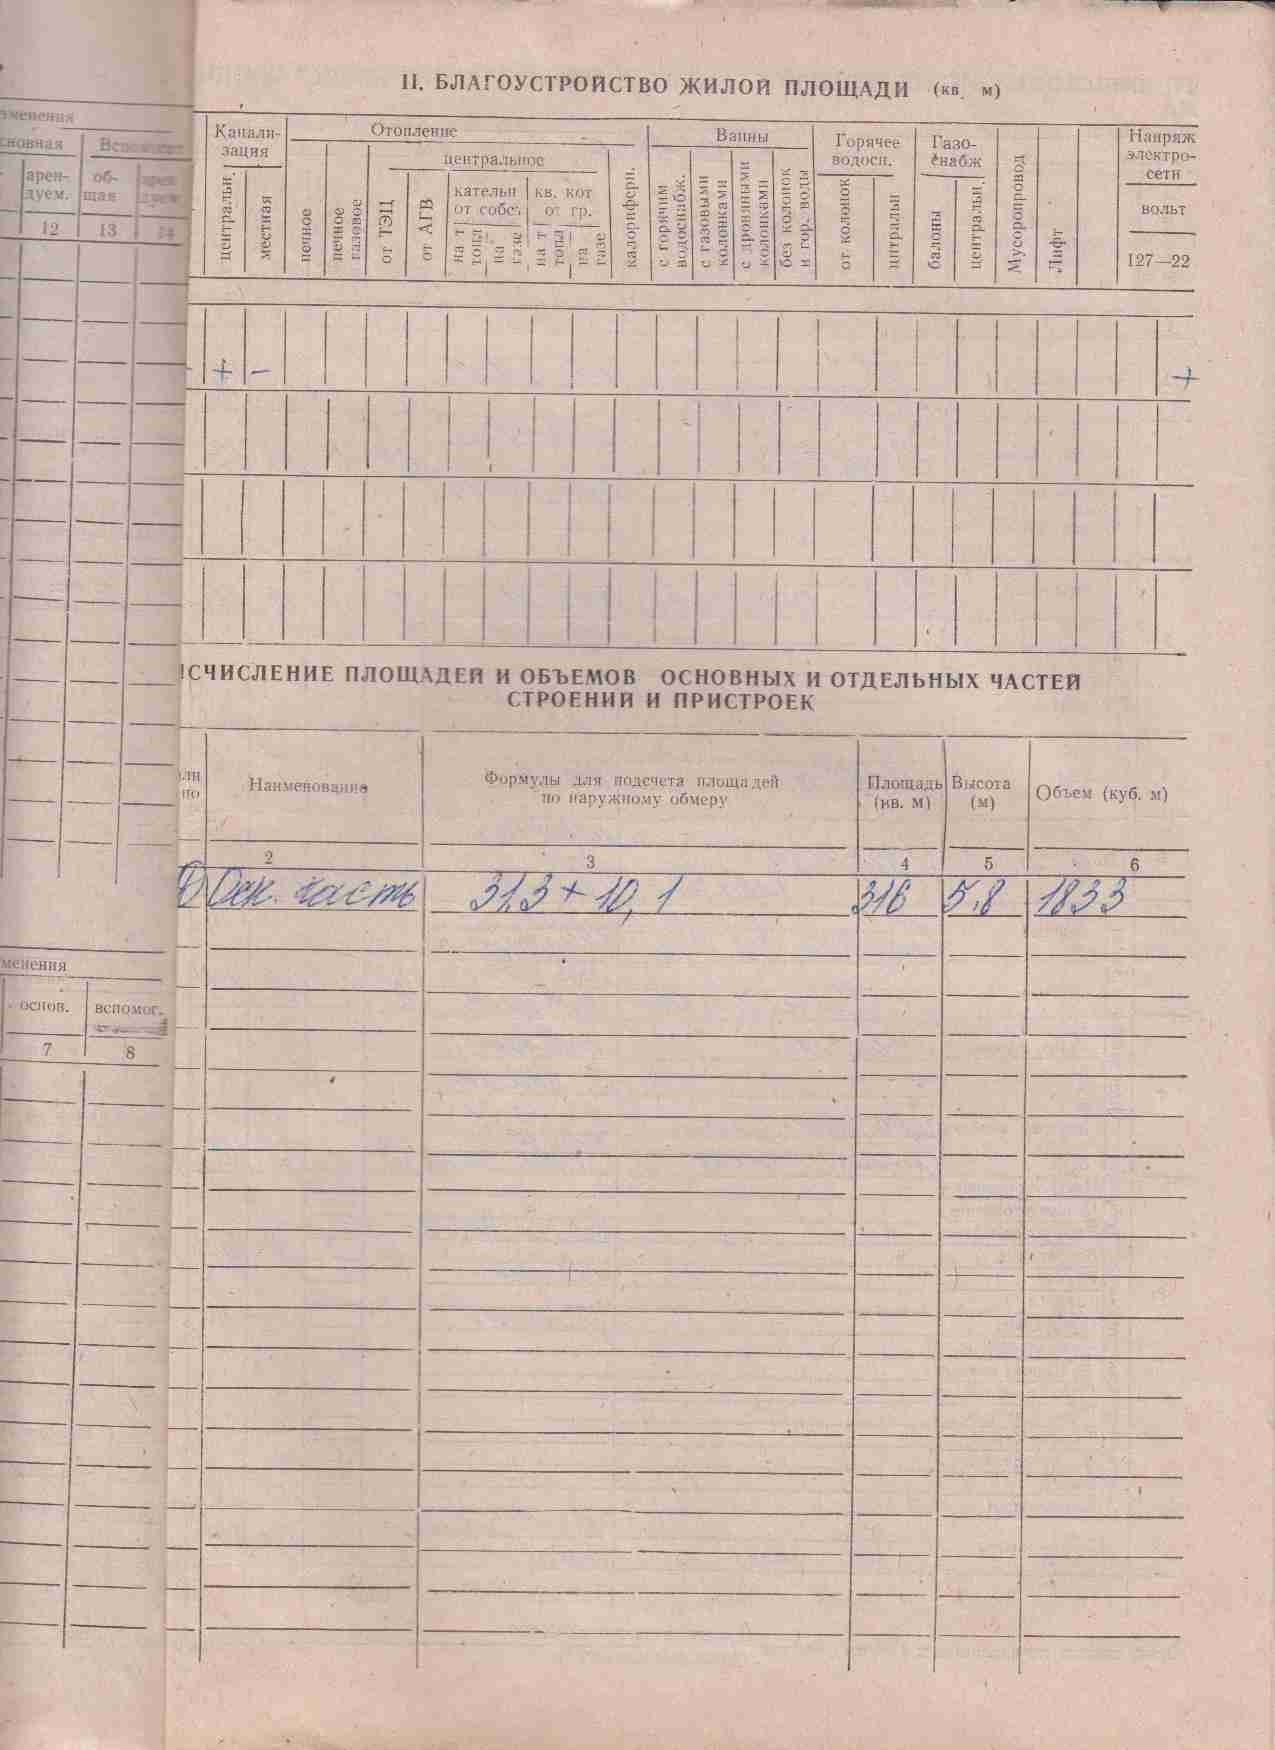 II. БЛАГОУСТРОЙСТВО ЖИЛОЙ ПЛОЩАДИ (кв. м)
Канали-
зация
централън.
местная
Отопление
печное
печное
газовое
центральное
от ТЭЦ
от АГВ
кательн
от собст
на т
топл
на
газе
кв. кот
от гр.
на т
топл
на
газе
калориферн.
Ванны
с горячим
водоснабж.
с газовыми
колонками
с дровяными
колонками
без колонок
и гор. воды
Горячее
водосн.
от колонок
централън
Газо-
снабж
балоны
централън.
Мусоропровод
Лифт
Напряж
электро-
сети
вольт
127—22
+ —
+
СЧИСЛЕНИЕ ПЛОЩАДЕЙ И ОБЪЕМОВ ОСНОВНЫХ И ОТДЕЛЬНЫХ ЧАСТЕЙ
СТРОЕНИЙ И ПРИСТРОЕК
Наименование
Формулы для подсчета площадей
по наружному обмеру
Площадь
(кв. м)
Высота
(м)
Объем (куб. м)
2 3 4 5 6
Осн. часть 31,3 + 10,1 316 5,8 1833
менения
сновная
арен-
дуем.
об-
щая
12 13 14
менения
основ.
вспомог.
7 8